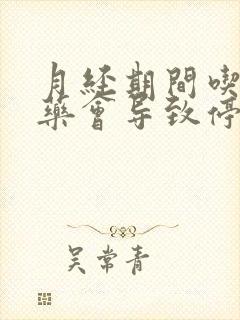 月经期間喫
藥會导致停
吴常青